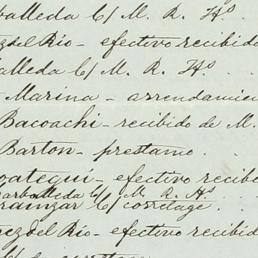 balleda C/ M. R. Hs.
del Rio - efectivo recibido
lleda C/ M. R. Hs. . .
Marina - arrendamien
Bacoachi - recibido de M.
Barton - prestamo.
efectivo recibe
arballeda C/ M. R. Hs. . . .
C/ corretage. .
del Rio - efectivo recibido